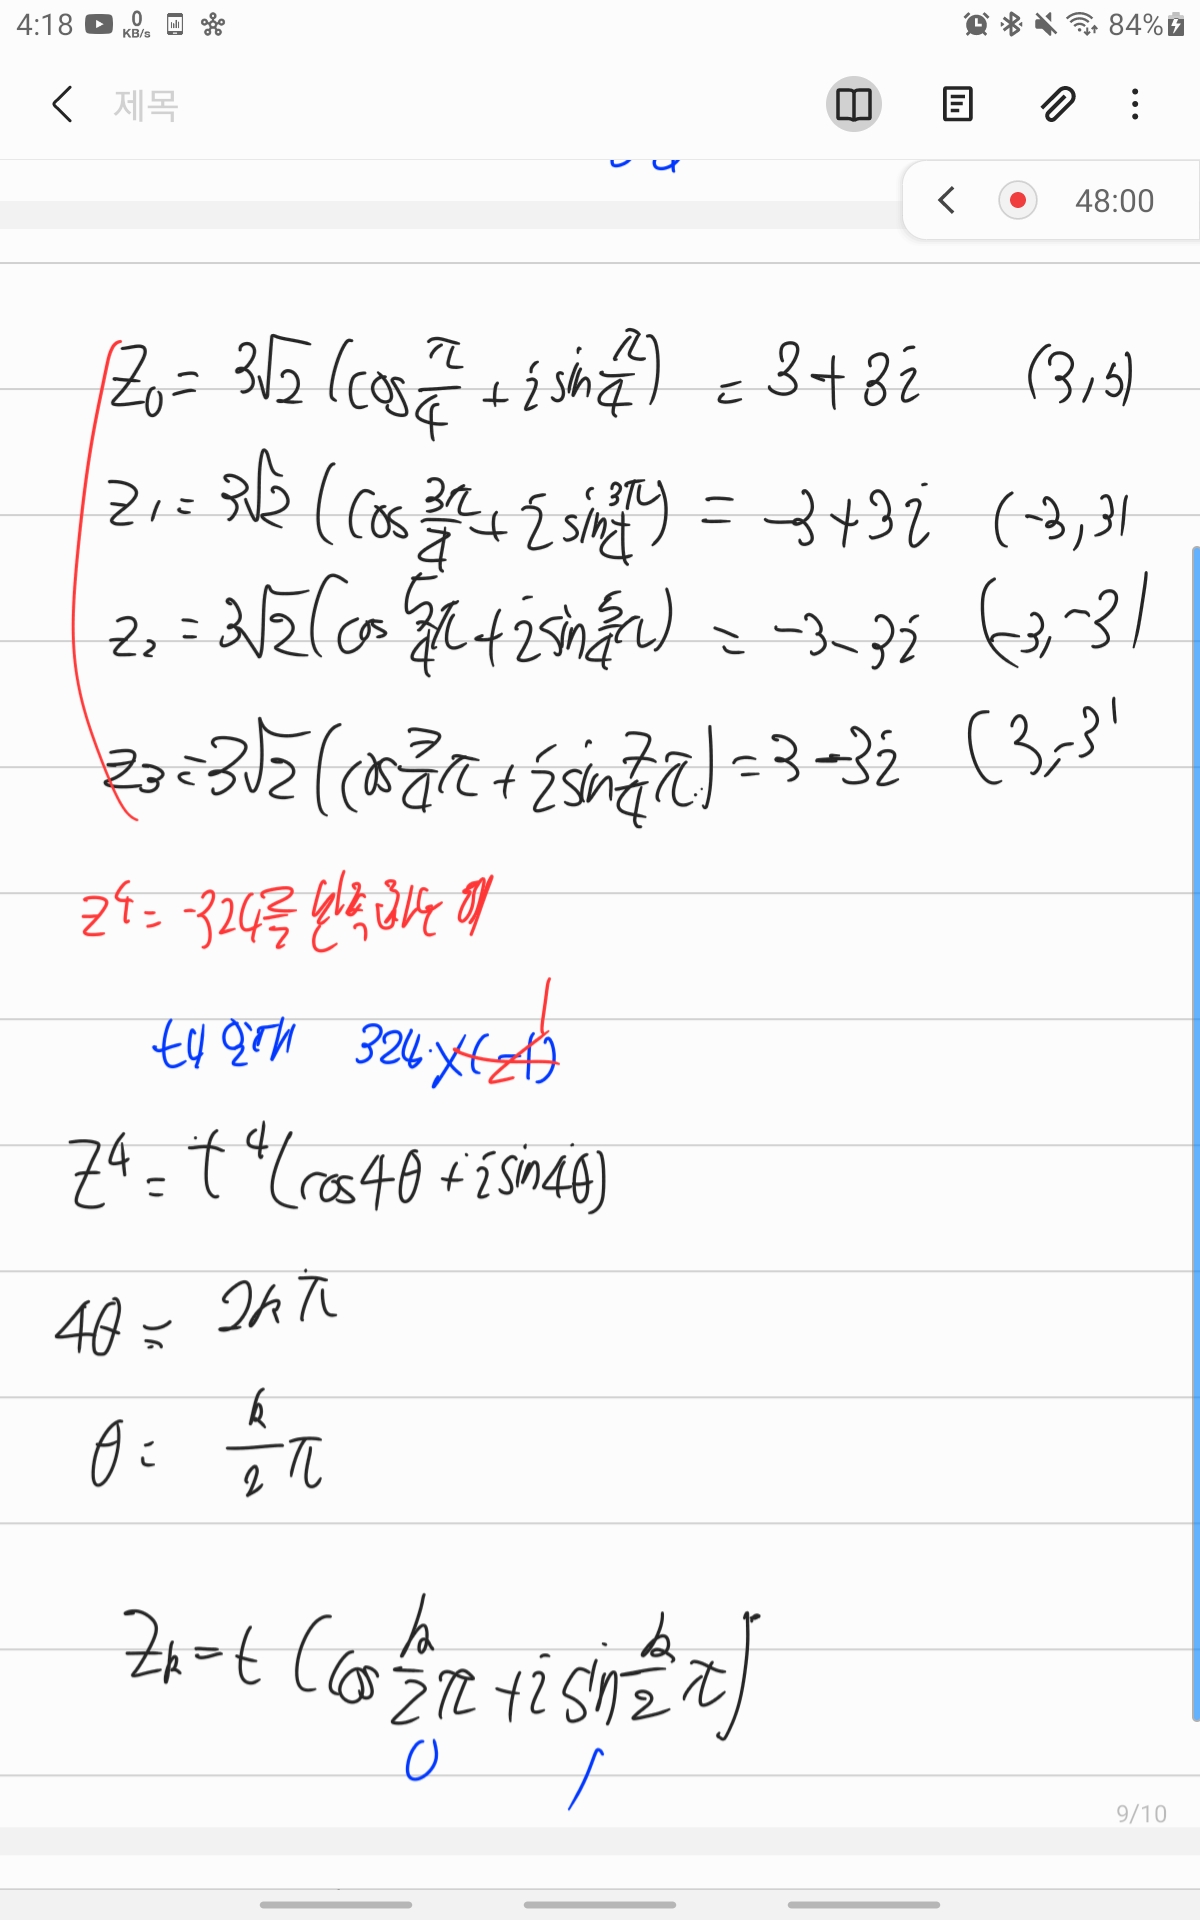 4:18 0 KB/s 84%
제목
48:00
Z₀ = 3√2 (cos π/4 + i sin π/4) = 3+3i (3,3)
Z₁ = 3√2 (cos 3π/4 + i sin 3π/4) = -3+3i (-3,3)
Z₂ = 3√2 (cos 5/4 π + i sin 5/4 π) = -3-3i (-3,-3)
Z₃ = 3√2 (cos 7/4 π + i sin 7/4 π) = 3-3i (3,-3)
Z⁴ = -324
324 × (-1)
Z⁴ = t⁴ (cos4θ + i sin4θ)
4θ = 2kπ
θ = k/2 π
Zₖ = t (cos k/2 π + i sin k/2 π)
0 1
9/10